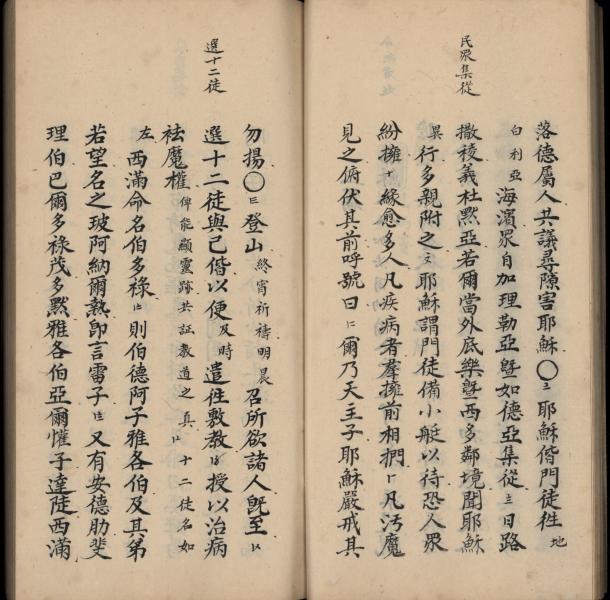 民眾集從
落德屬人共議尋隙害耶穌〇二耶穌偕門徒徃地
白利亞海濵眾自加理勒亞曁如德亞集從三日路
撒稜義杜黙亞若爾當外底樂曁西多鄰境聞耶穌
異行多親附之耶穌謂門徒備小艇以待恐人眾
紛擁十緣愈多人凡疾病者羣擁前相捫凡汚魔
見之俯伏其前呼號曰爾乃天主子耶穌嚴戒其
選十二徒
勿揚〇三登山終宵祈禱明晨召所欲諸人旣至
選十二徒與己偕以便及時遣徃敷教授以治病
祛魔權俾能顯靈跡共証教道之真十二徒名如
左西滿命名伯多祿則伯德阿子雅各伯及其弟
若望名之玻阿納爾熱卽言雷子又有安德肋斐
理伯巴爾多祿茂多黙雅各伯亞爾懽子達陡西滿